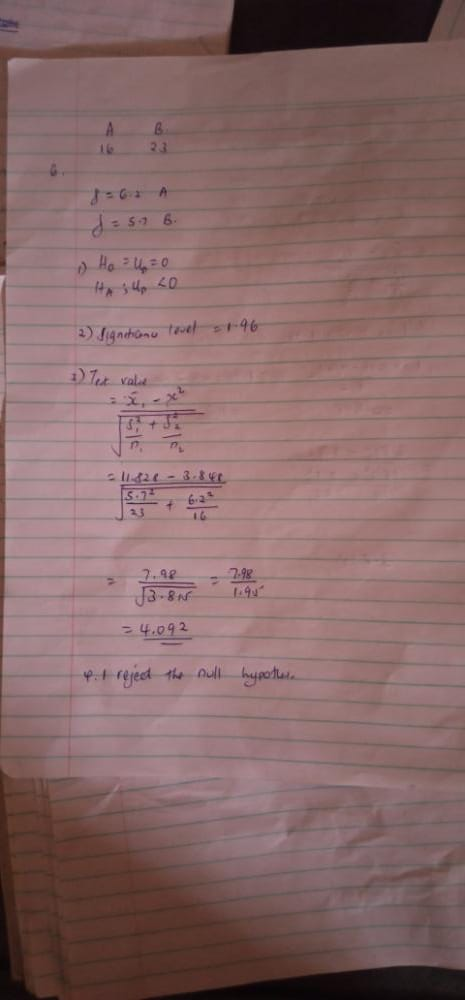 A B.
16 23
6.
s = 6.2 A
s = 5.7 B.
1) H₀ = μ_D = 0
H_A ; μ_D < 0
2) Significance level = 1.96
3) Test value
= x̄₁ - x²
√ S₁²/n₁ + S₂²/n₂
= 11.828 - 3.848
√ 5.7²/23 + 6.2²/16
= 7.98/√3.815 = 7.98/1.95
= 4.092
4. I reject the null hypothes.